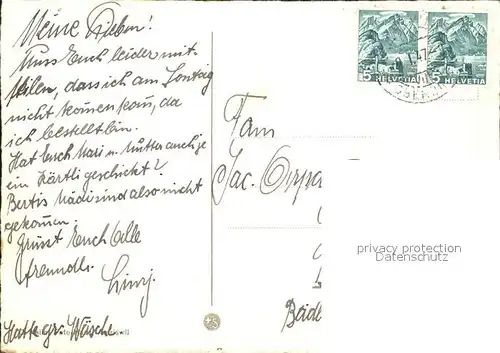 Meine Lieben!
Muss Euch leider mit-
teilen, dass ich am Sontag
nicht kommen kan, da
ich bestellt bin.
Hat Euch Mari u. Mutter auch je
ein Kärtli geschickt?
Bertis Mädi sind also nicht
gekommen.
Grüsst Euch Alle
freundl.
Hatte gr. Wäsche
Fam
Jac.
Bäde
5 HELVETIA 5 HELVETIA
47
privacy protection
Datenschutz